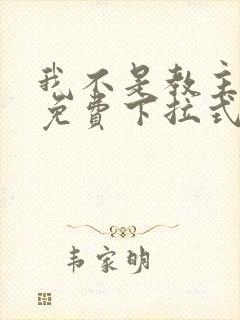 我不是教主
免費下拉式
韦家明